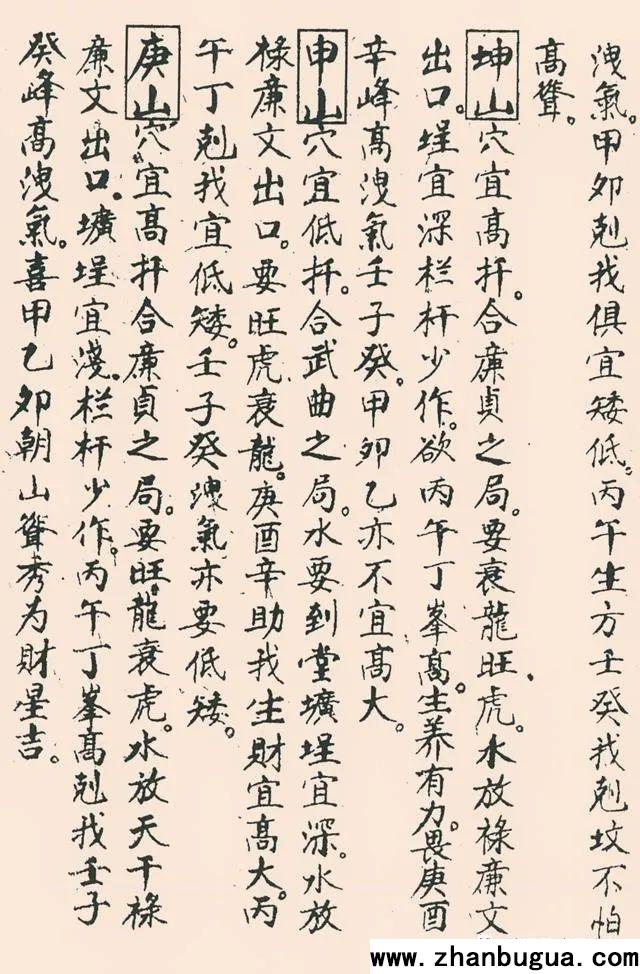 洩氣。甲卯剋我俱宜矮低。丙午生方壬癸我剋坟不怕
高聳。
坤山穴宜高扦。合廉貞之局。要衰龍旺虎。水放祿廉文
出口。埕宜深栏杆少作。欲丙午丁峯高。生养有力。畏庚酉
辛峰高洩氣壬子癸。甲卯乙亦不宜高大。
申山穴宜低扦。合武曲之局。水要到堂壙埕宜深。水放
祿廉文出口。要旺虎衰龍。庚酉辛助我生財宜高大。丙
午丁剋我宜低矮。壬子癸洩氣亦要低矮。
庚山穴宜高扦合廉貞之局。要旺龍衰虎。水放天干祿
廉文出口。壙埕宜淺。栏杆少作。丙午丁峯高剋我壬子
癸峰高洩氣。喜甲乙卯朝山聳秀为財星吉。
www.zhanbugua.com